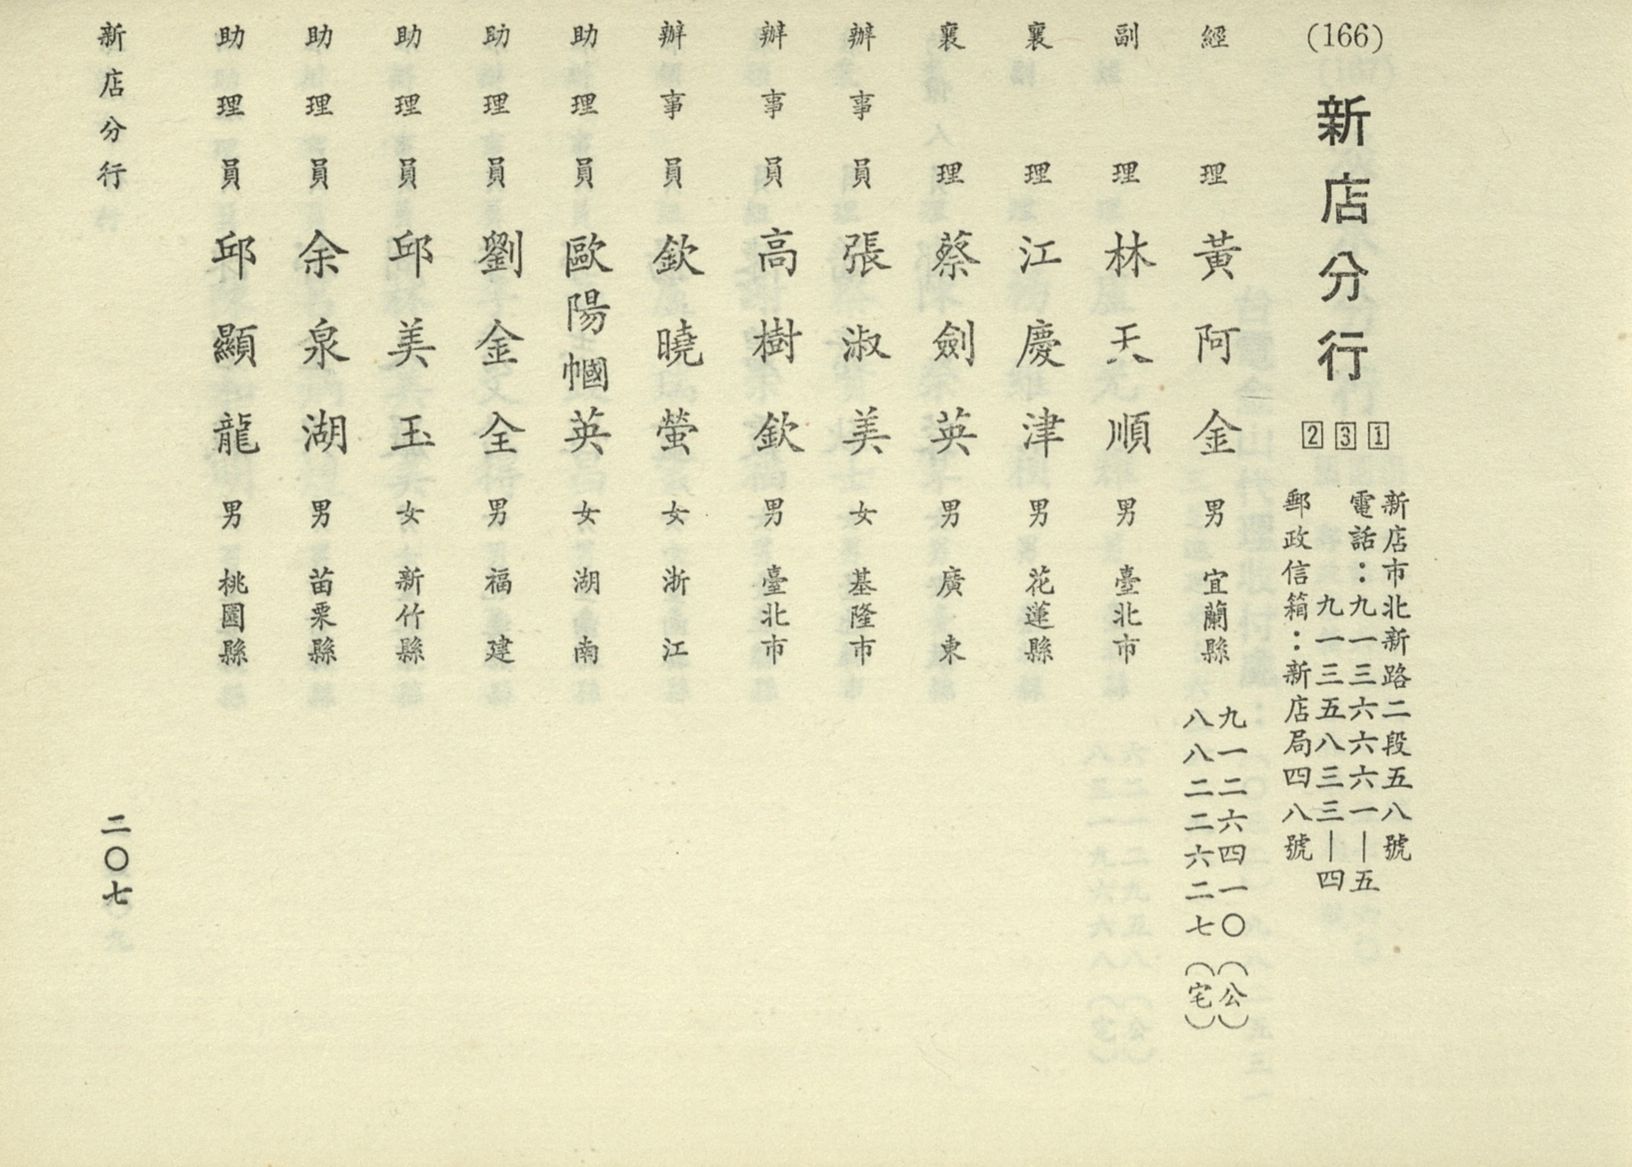 (166)
新店分行
231
新店市北新路二段五八號
電話：九一三六六六一—五
九一三五八三三—四
郵政信箱：新店局四八號
經理 黃阿金 男 宜蘭縣 九一二六四一〇（公）
八八二二六二七（宅）
副理 林天順 男 臺北市
襄理 江慶津 男 花蓮縣
襄理 蔡劍英 男 廣東
辦事員 張淑美 女 基隆市
辦事員 高樹欽 男 臺北市
辦事員 欽曉螢 女 浙江
助理員 歐陽幗英 女 湖南
助理員 劉金全 男 福建
助理員 邱美玉 女 新竹縣
助理員 余泉湖 男 苗栗縣
助理員 邱顯龍 男 桃園縣
新店分行
二〇七